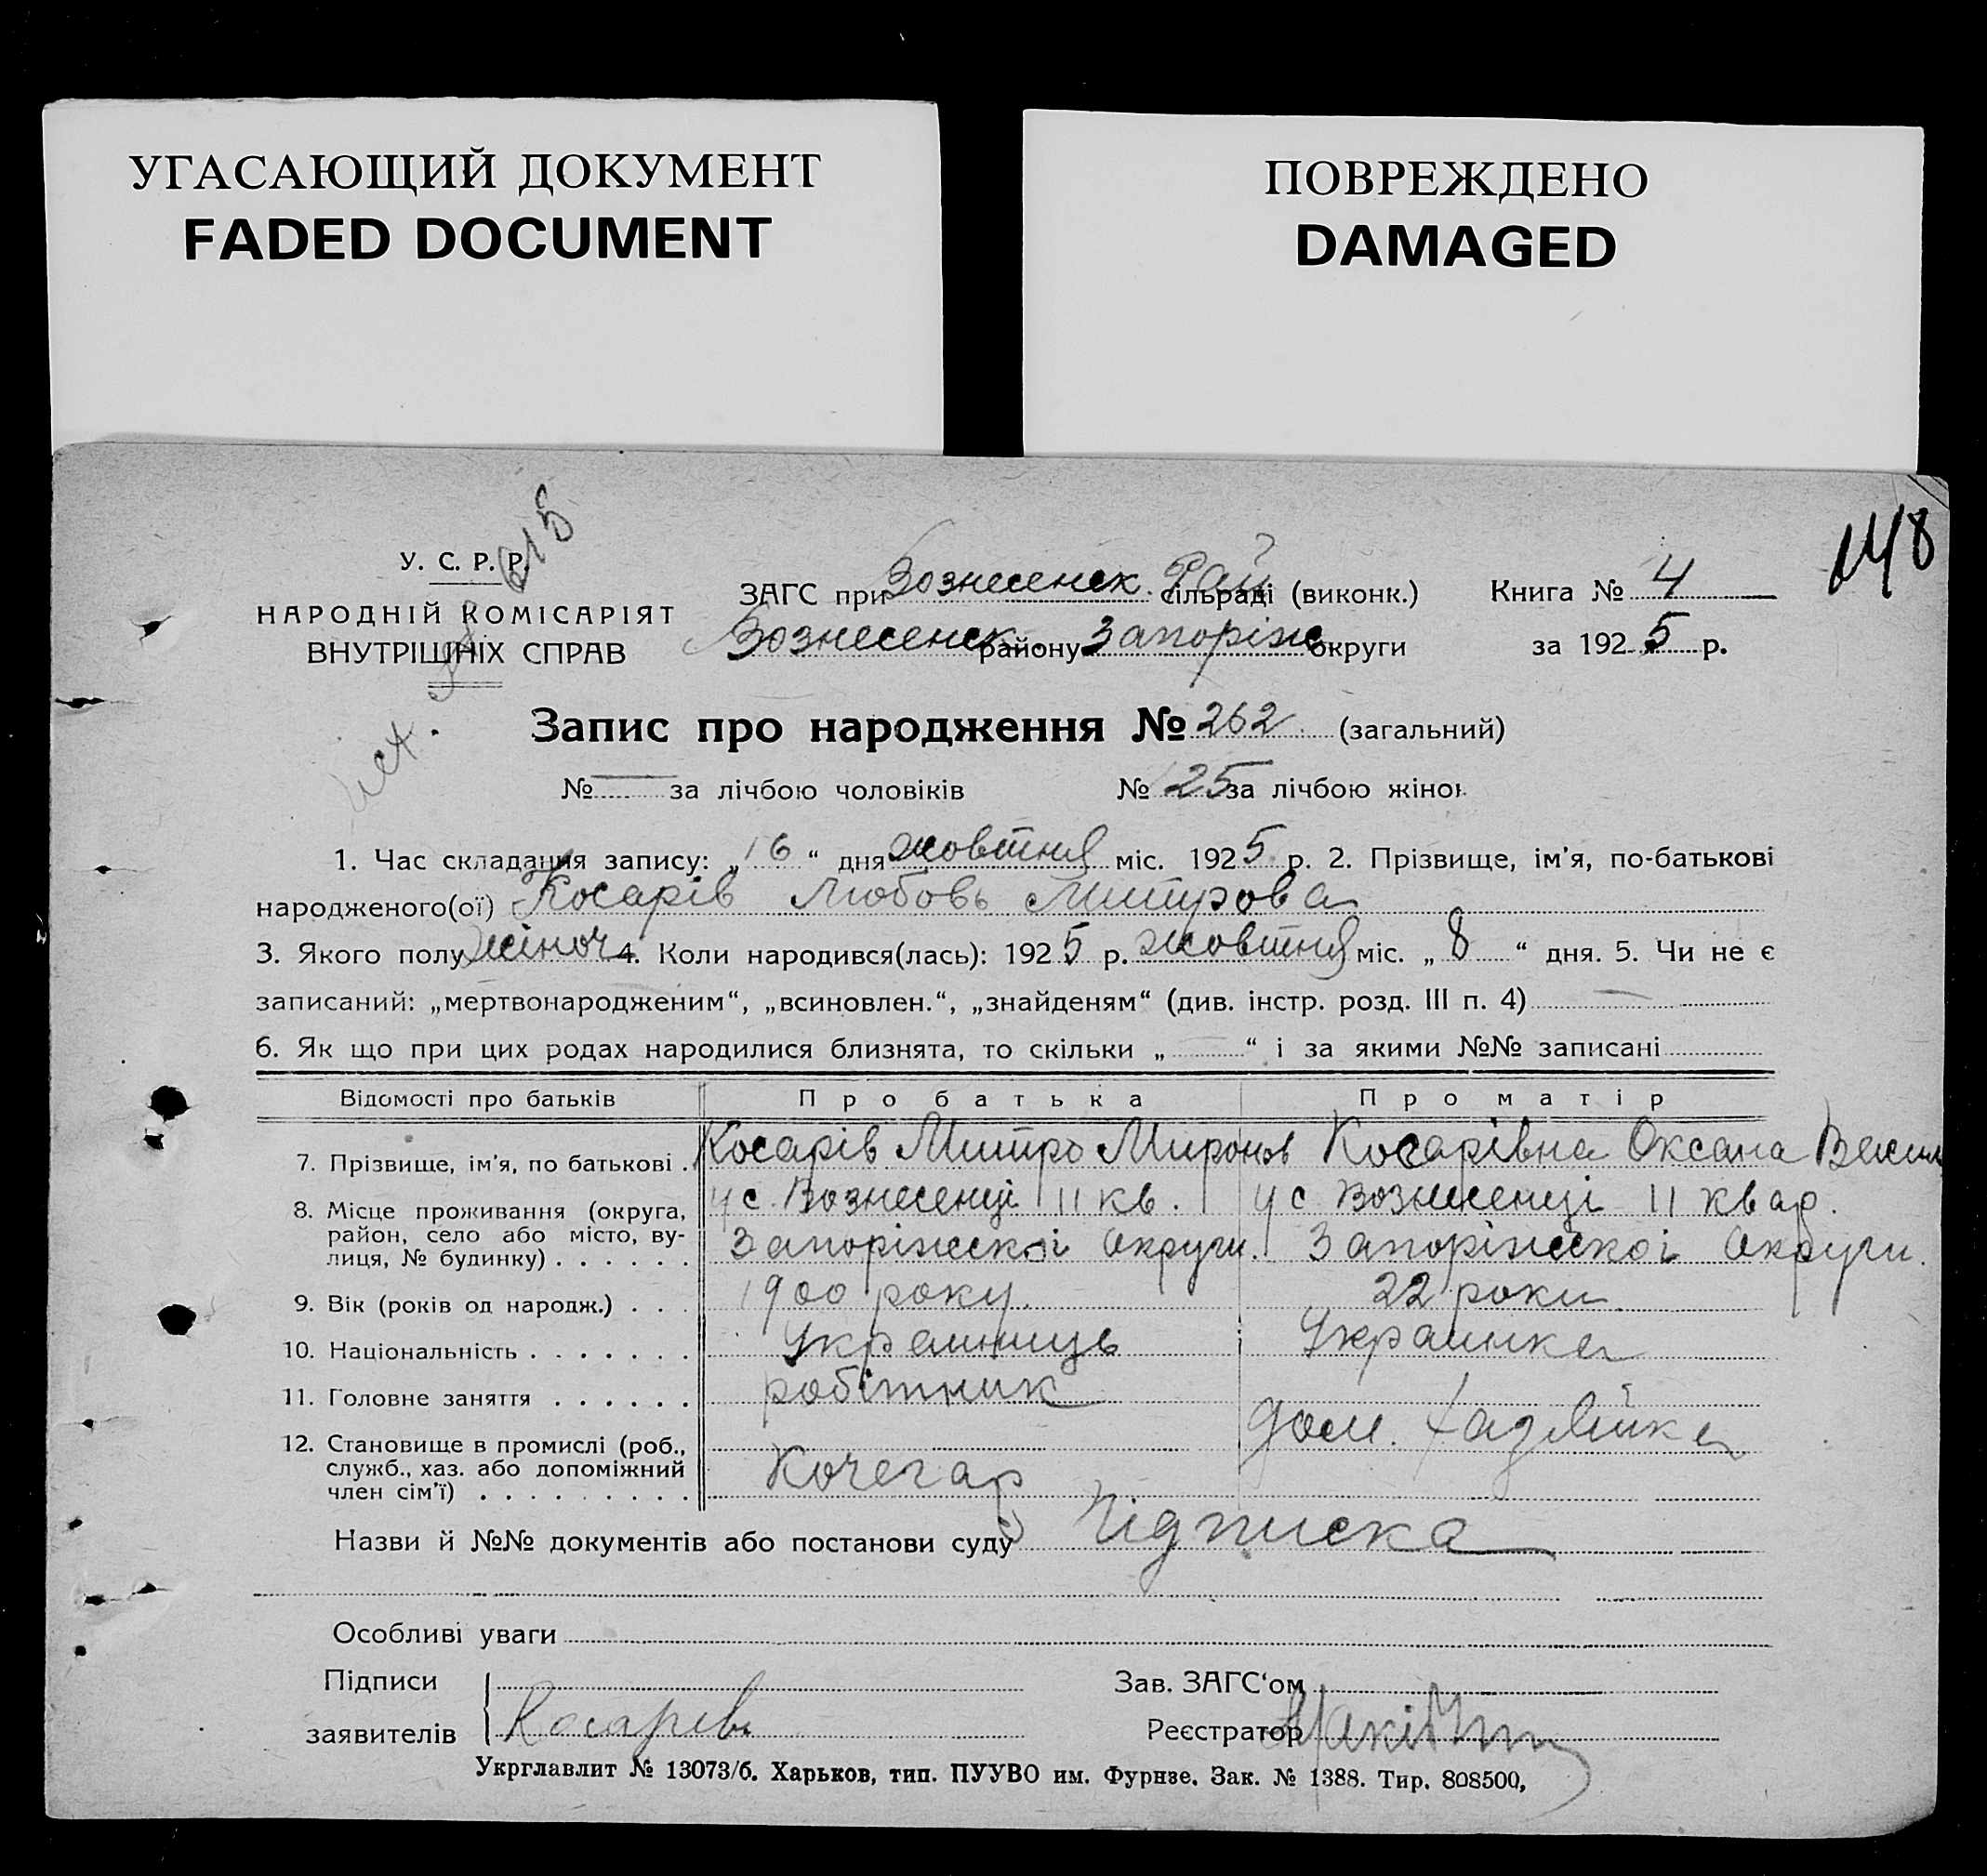 УГАСАЮЩИЙ ДОКУМЕНТ
FADED DOCUMENT
ПОВРЕЖДЕНО
DAMAGED
148
У. С. Р. Р.
НАРОДНІЙ КОМІСАРІЯТ
ВНУТРІШНІХ СПРАВ
ЗАГС при Вознесенск. Рай сільраді (виконк.) Книга № 4
Вознесенск. району Запоріж округи за 1925 р.
Запис про народження № 262 (загальний)
№ — за лічбою чоловіків № 125 за лічбою жінок
1. Час складання запису: „16“ дня жовтня міс. 1925 р. 2. Прізвище, ім'я, по-батькові
народженого(ої) Косарів Любовь Митрова
3. Якого полу жіноч 4. Коли народився(лась): 1925 р. жовтня міс. „8“ дня. 5. Чи не є
записаний: „мертвонародженим“, „всиновлен.“, „знайденям“ (див. інстр. розд. III п. 4) —
6. Як що при цих родах народилися близнята, то скільки „ “ і за якими №№ записані
Відомості про батьків Про батька Про матір
7. Прізвище, ім'я, по батькові . Косарів Митро Миронов Косарівна Оксана Васил
8. Місце проживання (округа, у с. Вознесенці 11 кв. у с. Вознесенці 11 квар.
район, село або місто, ву- Запоріжскоі Округи. Запоріжскоі Округи.
лиця, № будинку) . . . . . .
9. Вік (років од народж.) . . . 1900 року. 22 роки.
10. Національність . . . . . . . Украинець Украинка
11. Головне заняття . . . . . . робітник
12. Становище в промислі (роб., дом. хазяйка
служб., хаз. або допоміжний Кочегар
член сім'ї) . . . . . . . . .
Назви й №№ документів або постанови суду Підписка
Особливі уваги
Підписи Зав. ЗАГС'ом
заявителів Косарев Реєстратор
Укрглавлит № 13073/б. Харьков, тип. ПУУВО им. Фурнзе. Зак. № 1388. Тир. 808500,